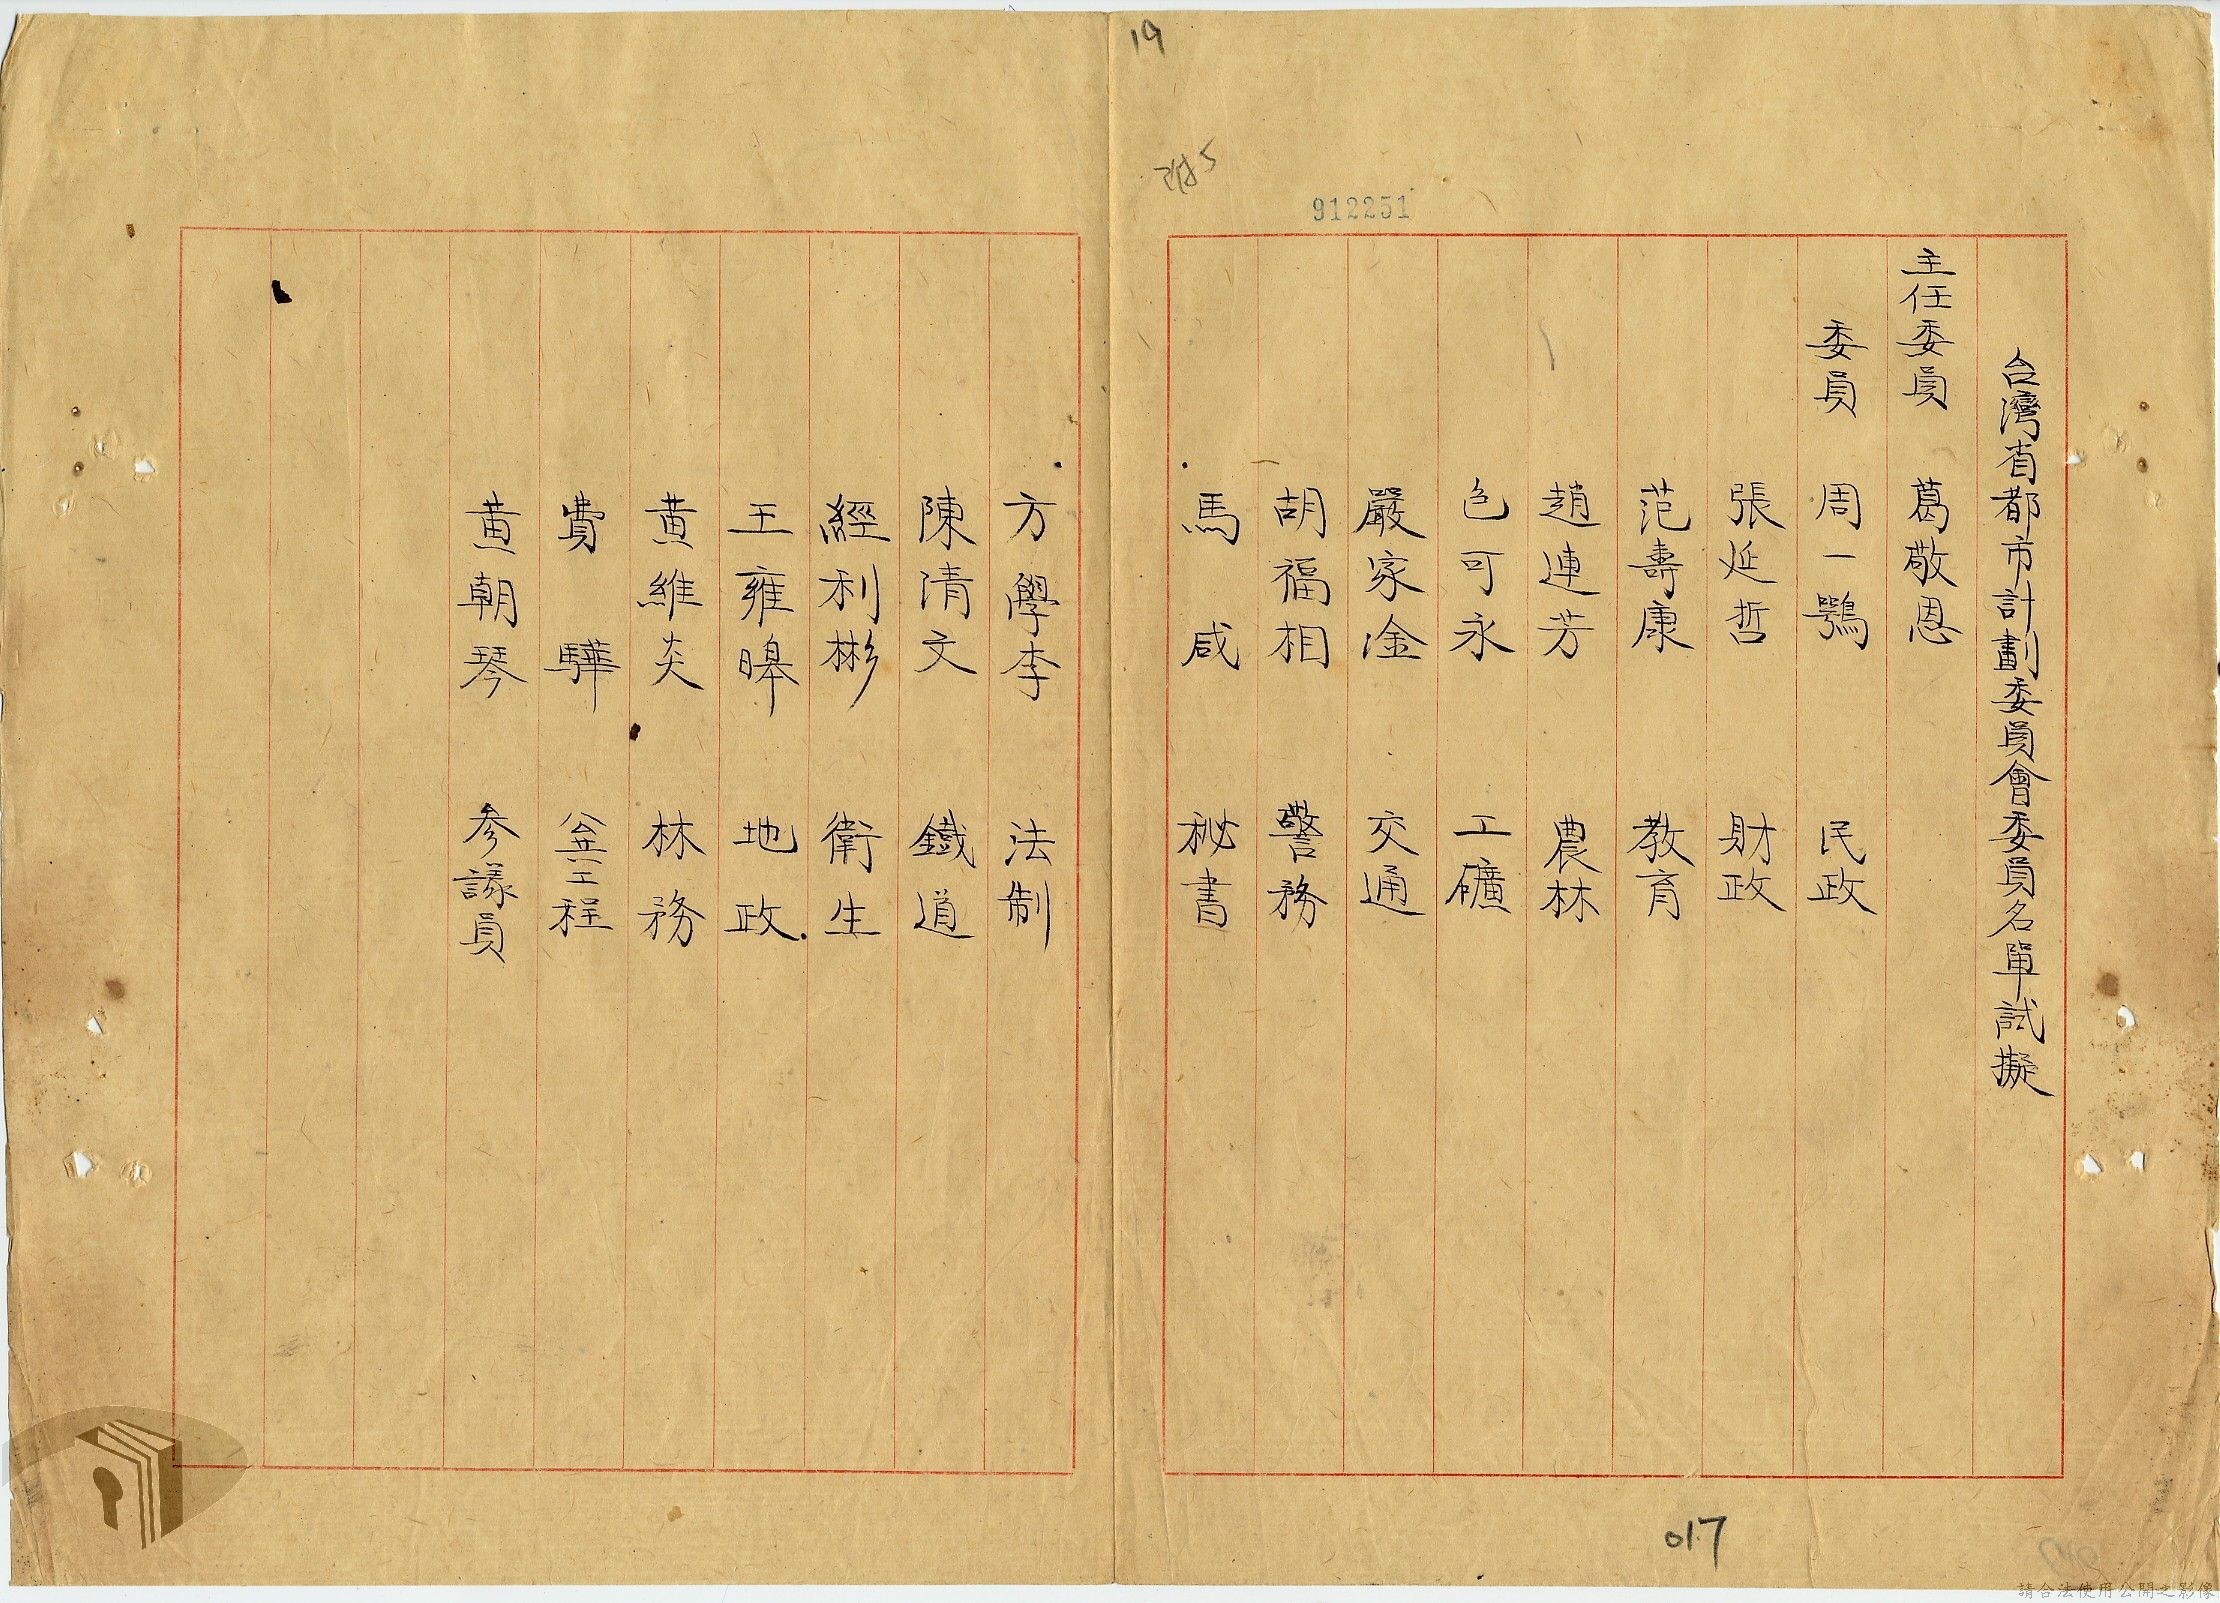 19
912251
台灣省都市計劃委員會委員名單試擬
主任委員 葛敬恩
委員 周一鶚 民政
張延哲 財政
范壽康 教育
趙連芳 農林
包可永 工礦
嚴家淦 交通
胡福相 警務
馬咸 秘書
方學李 法制
陳清文 鐵道
經利彬 衛生
王雍皞 地政
黄維炎 林務
費驊 公共工程
黄朝琴 参議員
017
請合法使用公開之影像